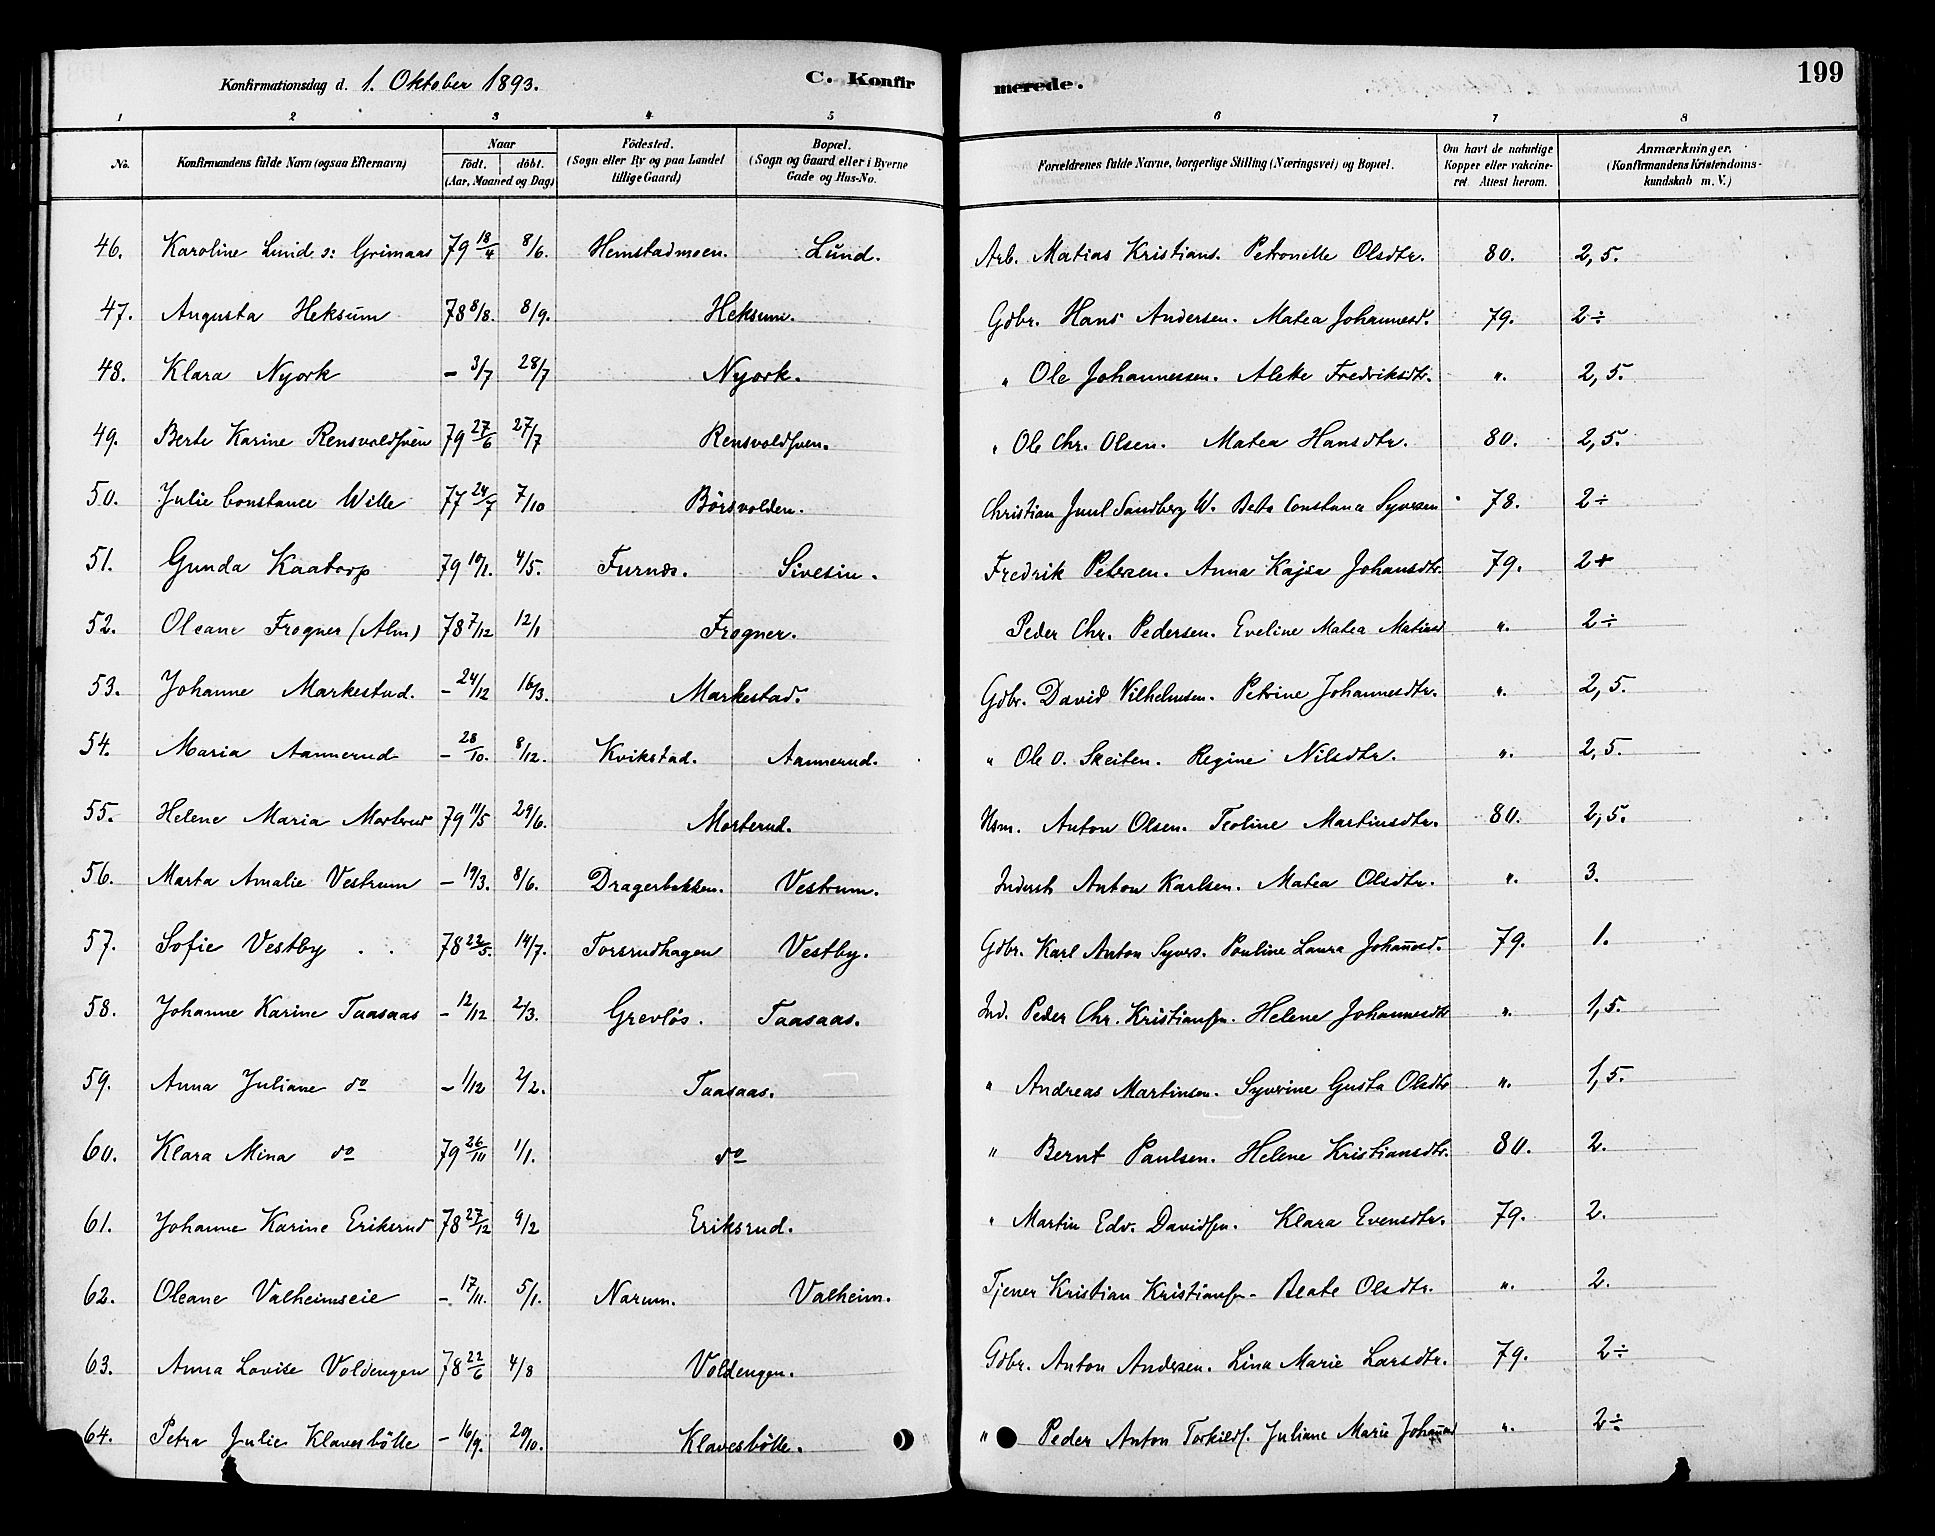 Konfirmationsdag d. 1. Oktober 1893. C. Konfir merede. 199
1 2 3 4 5 6 7 8
No. Konfirmandens fulde Navn (ogsaa Efternavn) Naar født. døbt. (Aar, Maaned og Dag) Födested. (Sogn eller By og paa Landet tillige Gaard) Bopæl. (Sogn og Gaard eller i Byerne Gade og Hus-No. Forældrenes fulde Navne, borgerlige Stilling (Næringsvei) og Bopæl. Om havt de naturlige Kopper eller vakcineret Attest herom. Anmærkninger. (Konfirmandens Kristendomskundskab m. V.)
46. Karoline Lund ɔ: Grimaas 79 18/4 8/6. Hemstadmoen. Lund. Arb. Matias Kristians. Petronelle Olsdtr. 80. 2,5.
47. Augusta Heksum 78 8/8. 8/9. Heksum. Gdbr. Hans Andersen. Matea Johannesd. 79. 2÷
48. Klara Nyork – 3/7 28/7 Nyork. " Ole Johannessen. Alette Fredriksdtr. ". 2,5.
49. Berte Karine Rensvoldsven 79 27/6 27/7 Rensvoldsven. " Ole Chr. Olsen. Matea Hansdtr. 80. 2,5.
50. Julie Constance Wille 77 24/7 7/10 Börsvolden. Christian Juul Sandberg W. Berte Constance Syversen 78. 2÷
51. Gunda Kaatorp 79 4/5. Furnæs. Sivesin. Fredrik Petersen. Anna Kajsa Johansdtr. 79. 2+
52. Oleane Frogner (Alm) 78 7/12 12/1 Frogner. Peder Chr. Pedersen. Eveline Matea Matiasd ". 2÷
53. Johanne Markestad. – 24/12 16/3. Markestad. Gdbr. David Vilhelmsen. Petrine Johannesdtr. ". 2,5.
54. Maria Aannerud – 28/10. 8/12. Kvikstad. Aannerud. " Ole O. Skeiten. Regine Nilsdtr. ". 2,5.
55. Helene Maria Morterud 79 11/5 29/6. Morterud. Hsm. Anton Olsen. Teoline Martinsdtr. 80. 2,5.
56. Marta Amalie Vestrum – 19/3. 8/6. Dragerbakken. Vestrum. Inderst Anton Karlsen. Matea Olsdtr. ". 3.
57. Sofie Vestby 78 23/5. 14/7. Torsrudhagen Vestby. Gdbr. Karl Anton Syvers. Pauline Laura Johannesd. 79. 1.
58. Johanne Karine Taasaas – 12/12 2/3. Grevlös. Taasaas. Ind. Peder Chr. Kristiansen. Helene Johannesdtr ". 1,5.
59. Anna Juliane do – 1/12 2/2. Taasaas. " Andreas Martinsen. Syverine Gusta Olsdtr ". 1,5.
60. Klara Mina do 79 26/11 1/1. do " Bernt Paulsen. Helene Kristiansdtr. 80. 2.
61. Johanne Karine Eriksrud 78 27/12 9/2 Eriksrud. " Martin Edv. Davidsen. Klara Evensdtr. 79. 2.
62. Oleane Valheimseie – 17/11. 5/1. Narum. Valheim. Tjener Kristian Kristiansen – Beate Olsdtr. ". 2.
63. Anna Lovise Voldengen 78 22/6 4/8 Voldengen. Gdbr. Anton Andersen. Lina Marie Larsdtr. 79. 2÷
64. Petra Julie Klavesbölle – 16/9. 20/10. Klavesbölle. " Peder Anton Torkilds. Juliane Marie Johannesd ". 2÷